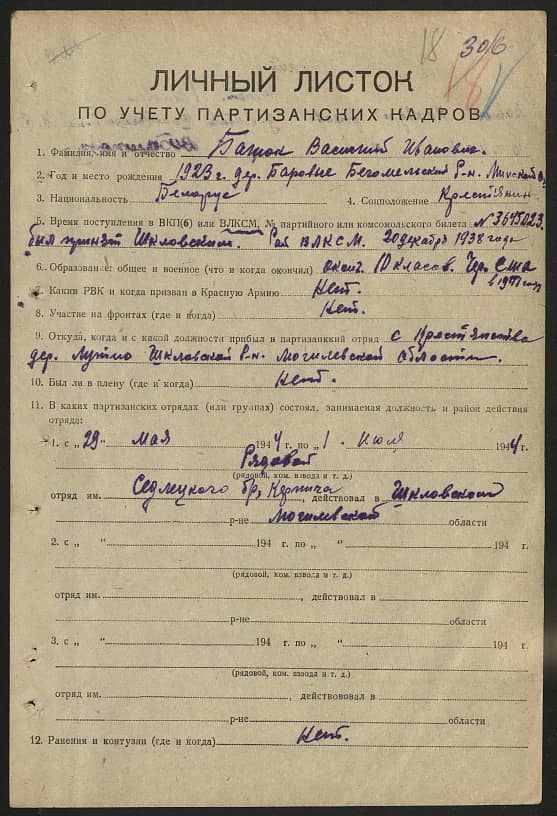 18 306
ЛИЧНЫЙ ЛИСТОК
ПО УЧЕТУ ПАРТИЗАНСКИХ КАДРОВ
1. Фамилия, имя и отчество Василий Иванович.
2. Год и место рождения 1923 г. дер. Баровые Бегомельский Р-н.
3. Национальность Беларус 4. Соцположение Крестьянин
5. Время поступления в ВКП(б) или ВЛКСМ, № партийного или комсомольского билета №3645023.
был принят Шкловским. Рай ВЛКСМ. 20 декабрь 1938 года
6. Образование: общее и военное (что и когда окончил) оконч. 10 класов.
7. Каким РВК и когда призван в Красную Армию Нет.
8. Участие на фронтах (где и когда) Нет.
9. Откуда, когда и с какой должности прибыл в партизанский отряд с Крестьянства
дер. Шкловской Р-н. Могилевской области.
10. Был ли в плену (где и когда) Нет.
11. В каких партизанских отрядах (или группах) состоял, занимаемая должность и район действия
отряда:
1. с „29" мая 1944 г. по „1. Июля 194 4г.
Рядовой
(рядовой, ком. взвода и т. д.)
отряд им. Седлецкого бр, Кирпича, действовал в Шкловском
р-не Могилевской области
2. с „ " 194 г. по „ " 194 г.
(рядовой, ком. взвода и т. д.)
отряд им. , действовал в
р-не области
3. с „ " 194 г. по „ " 194 г.
(рядовой, ком. взвода и т. д.)
отряд им. , действововал в
р-не области
12. Ранения и контузии (где и когда) Нет.